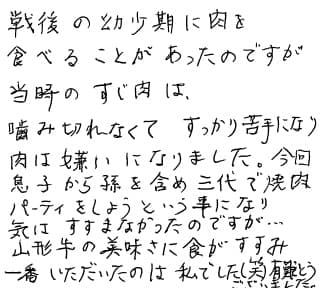 戦後の幼少期に肉を
食べることがあったのですが
当時のすじ肉は、
噛み切れなくて すっかり苦手になり
肉は嫌いになりました。今回
息子から孫を含め三代で焼肉
パーティをしようという事になり
気はすすまなかったのですが…
山形牛の美味さに食がすすみ
一番いただいたのは私でした(笑)有難とう
ございました。